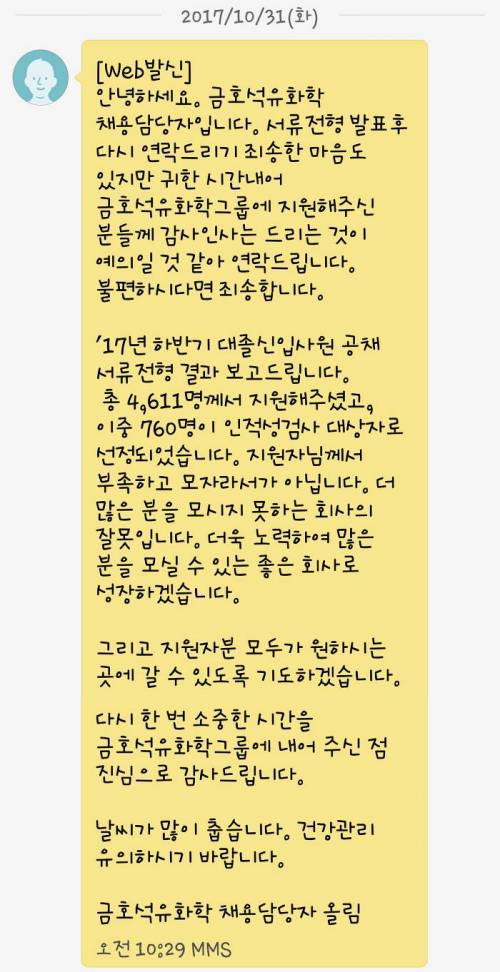 2017/10/31(화)
[Web발신]
안녕하세요. 금호석유화학
채용담당자입니다. 서류전형 발표후
다시 연락드리기 죄송한 마음도
있지만 귀한 시간내어
금호석유화학그룹에 지원해주신
분들께 감사인사는 드리는 것이
예의일 것 같아 연락드립니다.
불편하시다면 죄송합니다.
'17년 하반기 대졸신입사원 공채
서류전형 결과 보고드립니다.
총 4,611명께서 지원해주셨고,
이중 760명이 인적성검사 대상자로
선정되었습니다. 지원자님께서
부족하고 모자라서가 아닙니다. 더
많은 분을 모시지 못하는 회사의
잘못입니다. 더욱 노력하여 많은
분을 모실 수 있는 좋은 회사로
성장하겠습니다.
그리고 지원자분 모두가 원하시는
곳에 갈 수 있도록 기도하겠습니다.
다시 한 번 소중한 시간을
금호석유화학그룹에 내어 주신 점
진심으로 감사드립니다.
날씨가 많이 춥습니다. 건강관리
유의하시기 바랍니다.
금호석유화학 채용담당자 올림
오전 10:29 MMS